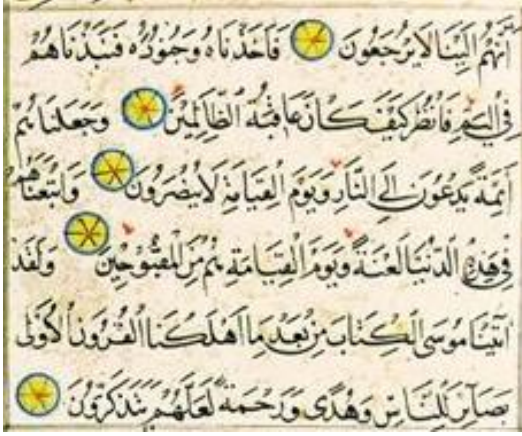 أَنَّهُمْ إِلَيْنَا لَا يُرْجَعُونَ فَأَخَذْنَاهُ وَجُنُودَهُ فَنَبَذْنَاهُمْ
فِي الْيَمِّ فَانْظُرْ كَيْفَ كَانَ عَاقِبَةُ الظَّالِمِينَ وَجَعَلْنَاهُمْ
أَئِمَّةً يَدْعُونَ إِلَى النَّارِ وَيَوْمَ الْقِيَامَةِ لَا يُنْصَرُونَ وَأَتْبَعْنَاهُمْ
فِي هَذِهِ الدُّنْيَا لَعْنَةً وَيَوْمَ الْقِيَامَةِ هُمْ مِنَ الْمَقْبُوحِينَ وَلَقَدْ
آتَيْنَا مُوسَى الْكِتَابَ مِنْ بَعْدِ مَا أَهْلَكْنَا الْقُرُونَ الْأُولَى
بَصَائِرَ لِلنَّاسِ وَهُدًى وَرَحْمَةً لَعَلَّهُمْ يَتَذَكَّرُونَ